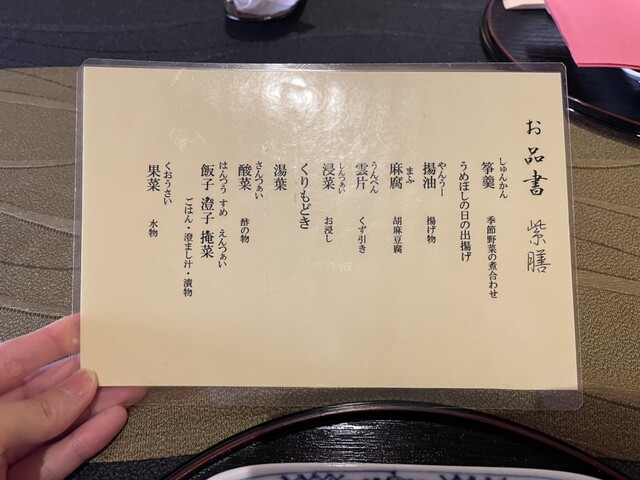 お品書　紫膳
しゅんかん
筝羹　季節野菜の煮合わせ
うめぼしの日の出揚げ
やんうー
揚油　揚げ物
まふ
麻腐　胡麻豆腐
うんぺん
雲片　くず引き
しんつぁい
浸菜　お浸し
くりもどき
湯葉
さんつぁい
酸菜　酢の物
はんつう　すめ　えんつぁい
飯子　澄子　掩菜
ごはん・澄まし汁・漬物
くおうさい
果菜　水物